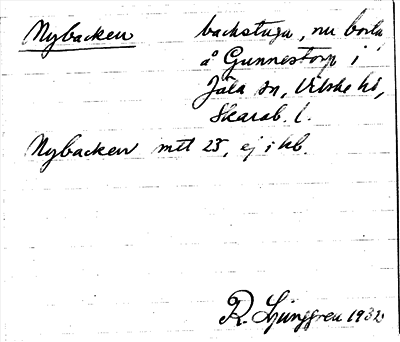 Nybacken backstuga, nu borta
å Gunnestorp i
Jäla sn, Vilske hd,
Skarab. l.
Nybacken mtt 25, ej i kb.
R. Ljunggren 1932